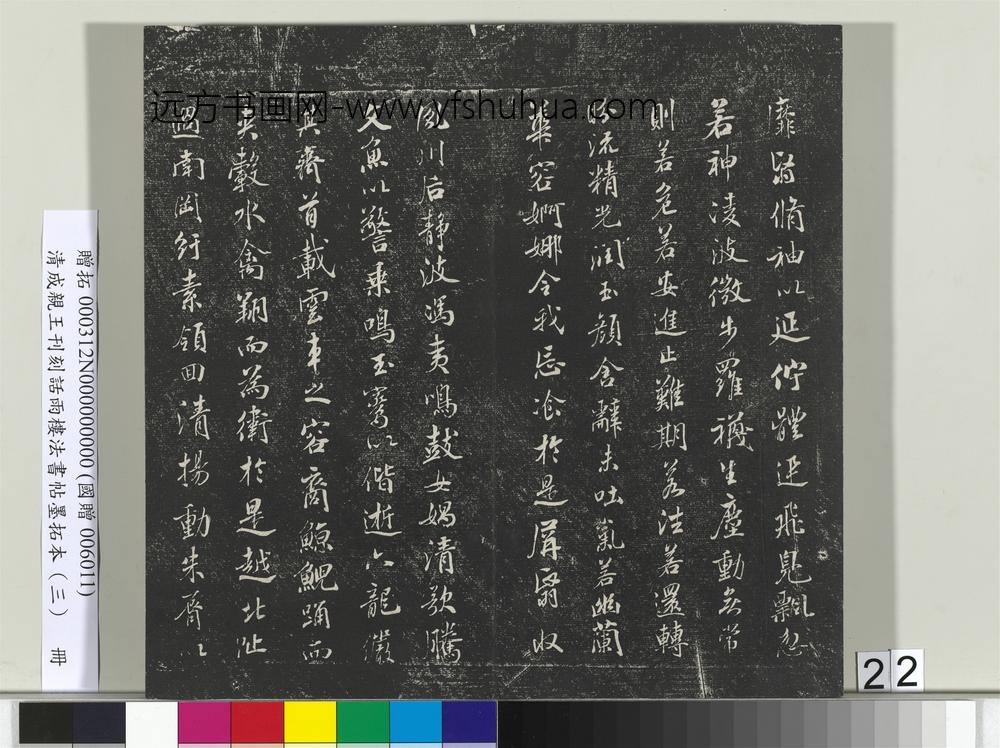 靡翳脩袖以延佇體迅飛鳧飄忽
若神淩波微步羅襪生塵動無常
則若危若安進止難期若往若還轉
眄流精光潤玉顏含辭未吐氣若幽蘭
華容婀娜令我忘飡於是屏翳收
風川后靜波馮夷鳴鼓女媧清歌騰
文魚以警乘鳴玉鸞以偕逝六龍儼
其齊首載雲車之容裔鯨鯢踊而
夾轂水禽翔而為衛於是越北沚
過南岡紆素領回清揚動朱脣以
远方书画网-www.yfshuhua.com
贈拓 000312N000000000 (國贈 006011)
清成親王刊刻詒晉樓法書帖墨拓本 (三) 冊
22